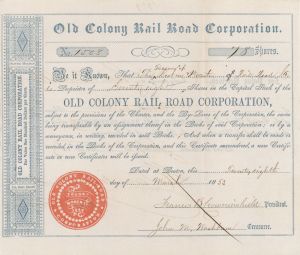 Old Colony Rail Road Corporation.
No. 1508 78 Shares.
Be it Known, That
is Proprietor of Seventy eight Shares in the Capital Stock of the
OLD COLONY RAIL ROAD CORPORATION,
subject to the provisions of the Charter, and the By-Laws of the Corporation, the same
being transferable by an assignment thereof in the Books of said Corporation; or by a
conveyance, in writing, recorded in said Books; And when a transfer shall be made or
recorded in the Books of the Corporation, and this Certificate surrendered, a new Certificate
or new Certificates will be issued.
Dated at Boston, this Twenty eighth
day of March 1853
Francis B. Crowninshield President.
John M. Washburn Treasurer.
OLD COLONY RAIL ROAD CORPORATION
OLD COLONY RAIL ROAD